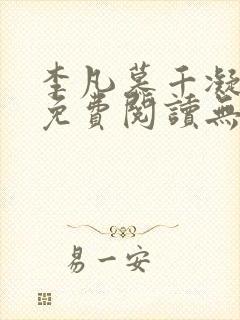 李凡慕千凝
免費閱讀無
易一安